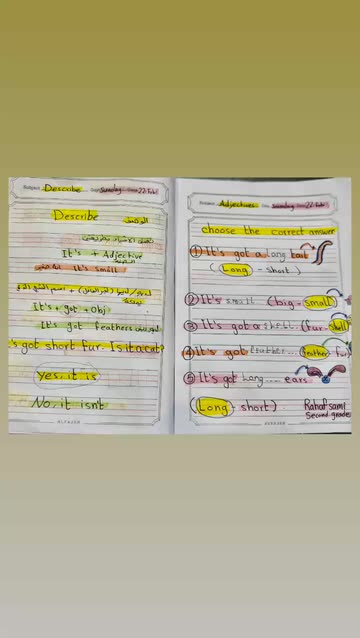 Subject: Describe Day: Sunday Date: 22-Feb
Describe
الوصف
It's + Adjective
It's small
It's + got + Obj
It's got feathers
's got short fur. Is it a cat?
Yes, it is
No, it isn't
ALFAJER
Subject: Adjectives Day: Sunday Date: 22-Feb
choose the correct answer
① It's got a long tail
(Long - short)
② It's small (big - small
③ It's got a shell... (fur- shell
④ It's got feather... (feather - fur
⑤ It's got Long .... ears
(Long - short).
Rahaf sami
Second grade
ALFAJER